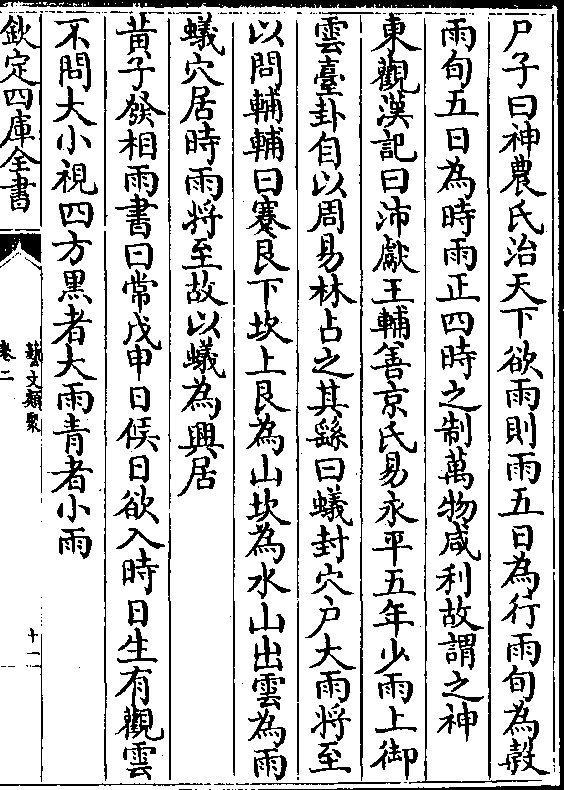 尸子曰神農氏治天下欲雨則雨五日為行雨旬為穀
雨旬五日為時雨正四時之制萬物咸利故謂之神
東觀漢記曰沛獻王輔善京氏易永平五年少雨上御
雲臺卦自以周易林占之其繇曰蟻封穴户大雨將至
以問輔輔曰蹇艮下坎上艮為山坎為水山出雲為雨
蟻穴居時雨将至故以蟻為興居
黃子發相雨書曰常戊申日候日欲入時日生有觀雲
不問大小視四方黒者大雨青者小雨
欽定四庫全書
藝文類聚
卷二
十二